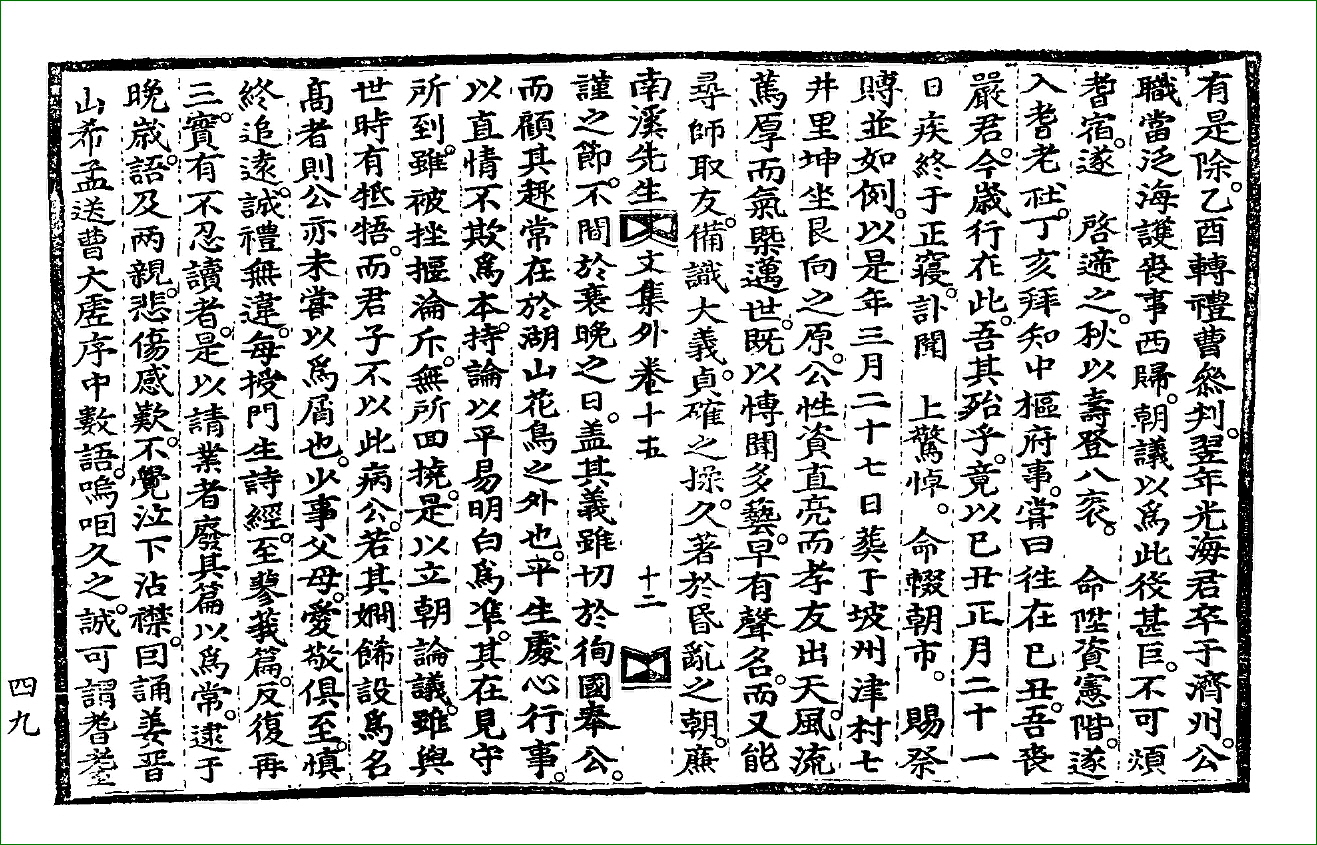 有是除。乙酉轉禮曹叅判。翌年光海君卒于濟州。公
職當泛海護喪事西歸。朝議以爲此役甚巨。不可煩
耆宿。遂 啓遞之。秋以壽登八袠。 命陞資憲階。遂
入耆老社。丁亥拜知中樞府事。嘗曰徃在己丑。吾喪
嚴君。今歲行在此。吾其殆乎。竟以己丑正月二十一
日疾終于正寢。訃聞 上驚悼。命輟朝市。賜祭
賻並如例。以是年三月二十七日葬于坡州津村七
井里坤坐艮向之原。公性資直亮而孝友出天。風流
篤厚而氣槩邁世。旣以博聞多藝。早有聲名。而又能
尋師取友。備識大義。貞確之操。久著於昏亂之朝。廉
南溪先生文集外卷十五 十二
謹之節。不間於衰晚之日。盖其義雖切於徇國奉公。
而顧其趣常在於湖山花鳥之外也。平生處心行事。
以直情不欺爲本。持論以平易明白爲準。其在見守
所到。雖被挫搵淪斥。無所回撓。是以立朝論議。雖與
世時有牴牾。而君子不以此病公。若其嫺餙設爲名
高者則公亦未嘗以爲屑也。少事父母。愛敬俱至。愼
終追遠。誠禮無違。每授門生詩經。至蓼莪篇。反復再
三。實有不忍讀者。是以請業者廢其篇以爲常。逮于
晚歲。語及兩親。悲傷感歎。不覺泣下沾襟。回誦姜晉
山希孟送曹大虛序中數語。嗚咽久之。誠可謂耆耋
四九